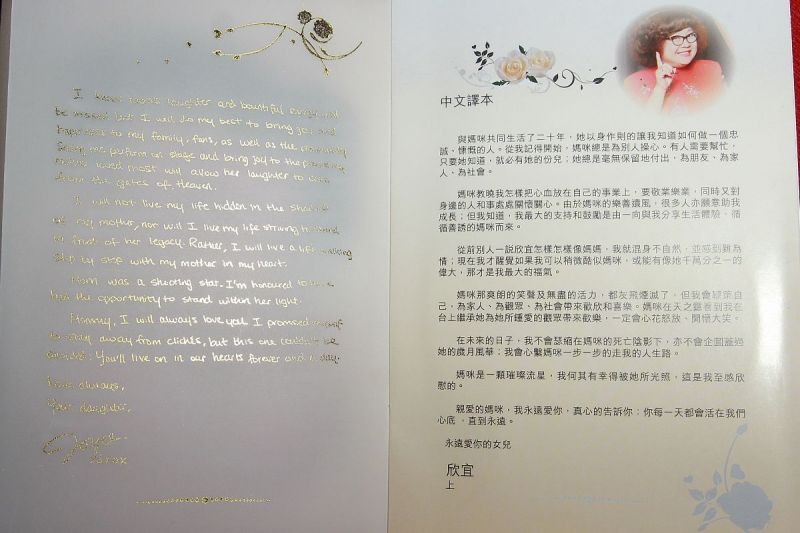 I know mom's laughter and bountiful energy will
be missed but I will do my best to bring joy and
happiness to my family, fans, as well as the community
Seeing me perform on stage and bring joy to the people my
mother loved most will allow her laughter to come
from the gates of Heaven.
I will not live my life hidden in the shadow
of my mother, nor will I live my life striving to stand
in front of her legacy. Rather, I will live a life walking
step by step with my mother in my heart.
Mom was a shooting star. I'm honoured to have
had the opportunity to stand within her light.
Mommy, I will always love you! I promised myself
to stay away from clichés, but this one couldn't be
avoided: You'll live on in our hearts forever and a day.
Love always,
Your daughter,
Joyce
中文譯本
與媽咪共同生活了二十年，她以身作則的讓我知道如何做一個忠
誠、慷慨的人。從我記得開始，媽咪總是為別人操心。有人需要幫忙，
只要她知道，就必有她的份兒；她總是毫無保留地付出，為朋友、為家
人、為社會。
媽咪教曉我怎樣把心血放在自己的事業上，要敬業樂業，同時又對
身邊的人和事處處關懷關心。由於媽咪的樂善遺風，很多人亦願意助我
成長；但我知道，我最大的支持和鼓勵是由一向與我分享生活體驗、循
循善誘的媽咪而來。
從前別人一說欣宜怎樣怎樣像媽媽，我就混身不自然，並感到難為
情；現在我才醒覺如果我可以稍微酷似媽咪，或能有像她千萬分之一的
偉大，那才是我最大的福氣。
媽咪那爽朗的笑聲及無盡的活力，都灰飛煙滅了，但我會鞭策自
己，為家人、為觀眾、為社會帶來歡欣和喜樂。媽咪在天之靈看到我在
台上繼承她為她所鍾愛的觀眾帶來歡樂，一定會心花怒放、開懷大笑。
在未來的日子，我不會瑟縮在媽咪的死亡陰影下，亦不會企圖蓋過
她的歲月風華；我會心繫媽咪一步一步的走我的人生路。
媽咪是一顆璀璨流星，我何其有幸得被她所光照，這是我至感欣
慰的。
親愛的媽咪，我永遠愛你，真心的告訴你：你每一天都會活在我們
心底，直到永遠。
永遠愛你的女兒
欣宜
上